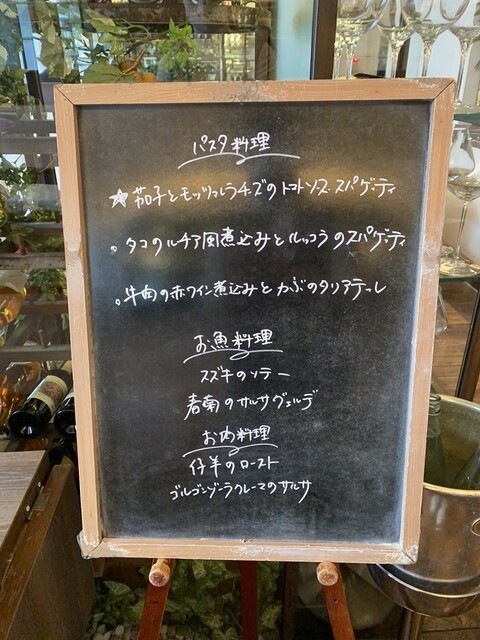 パスタ料理
☆茄子とモッツァレラチーズのトマトソーススパゲッティ
。タコのルチア風煮込みとルッコラのスパゲッティ
。牛肉の赤ワイン煮込みとかぶのタリアテッレ
お魚料理
スズキのソテー
春菊のサルサヴェルデ
お肉料理
仔羊のロースト
ゴルゴンゾーラクレーマのサルサ